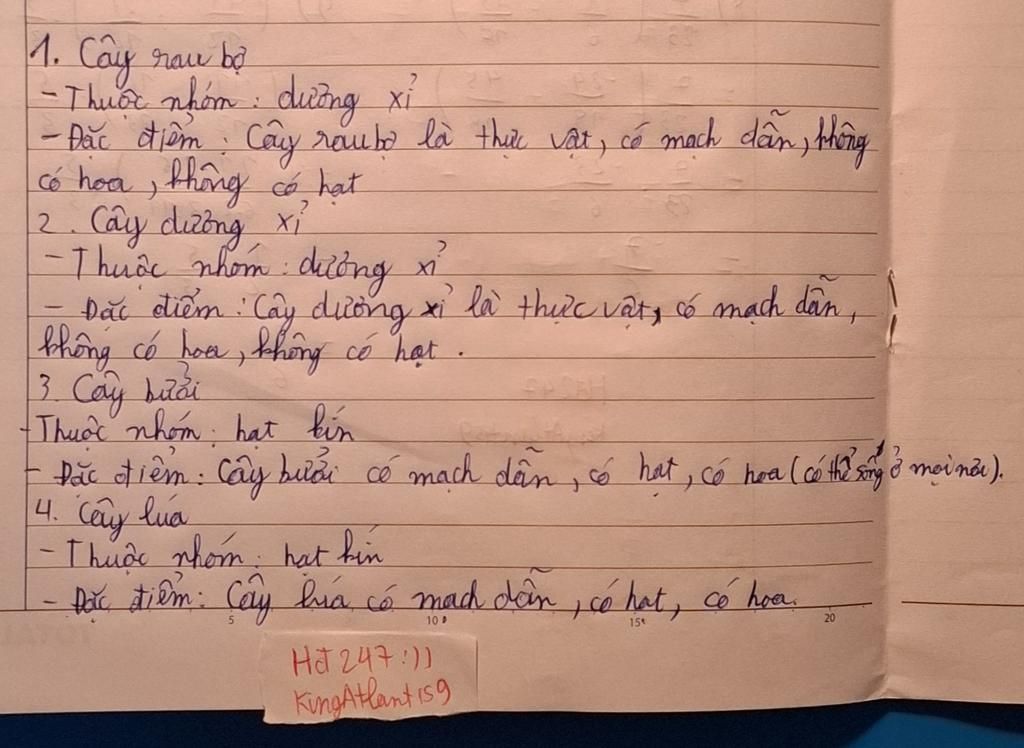 1. Cây rau bợ
- Thuộc nhóm: dương xỉ
- Đặc điểm: Cây rau bợ là thực vật, có mạch dẫn, không
có hoa, không có hạt
2. Cây dương xỉ
- Thuộc nhóm: dương xỉ
- Đặc điểm: Cây dương xỉ là thực vật, có mạch dẫn,
không có hoa, không có hạt.
3. Cây bưởi
- Thuộc nhóm: hạt kín
- Đặc điểm: Cây bưởi có mạch dẫn, có hạt, có hoa (có thể sống ở mọi nơi).
4. Cây lúa
- Thuộc nhóm: hạt kín
- Đặc điểm: Cây lúa có mạch dẫn, có hạt, có hoa.
5 10 15 20
Hđ247:))
KingAtlantis9